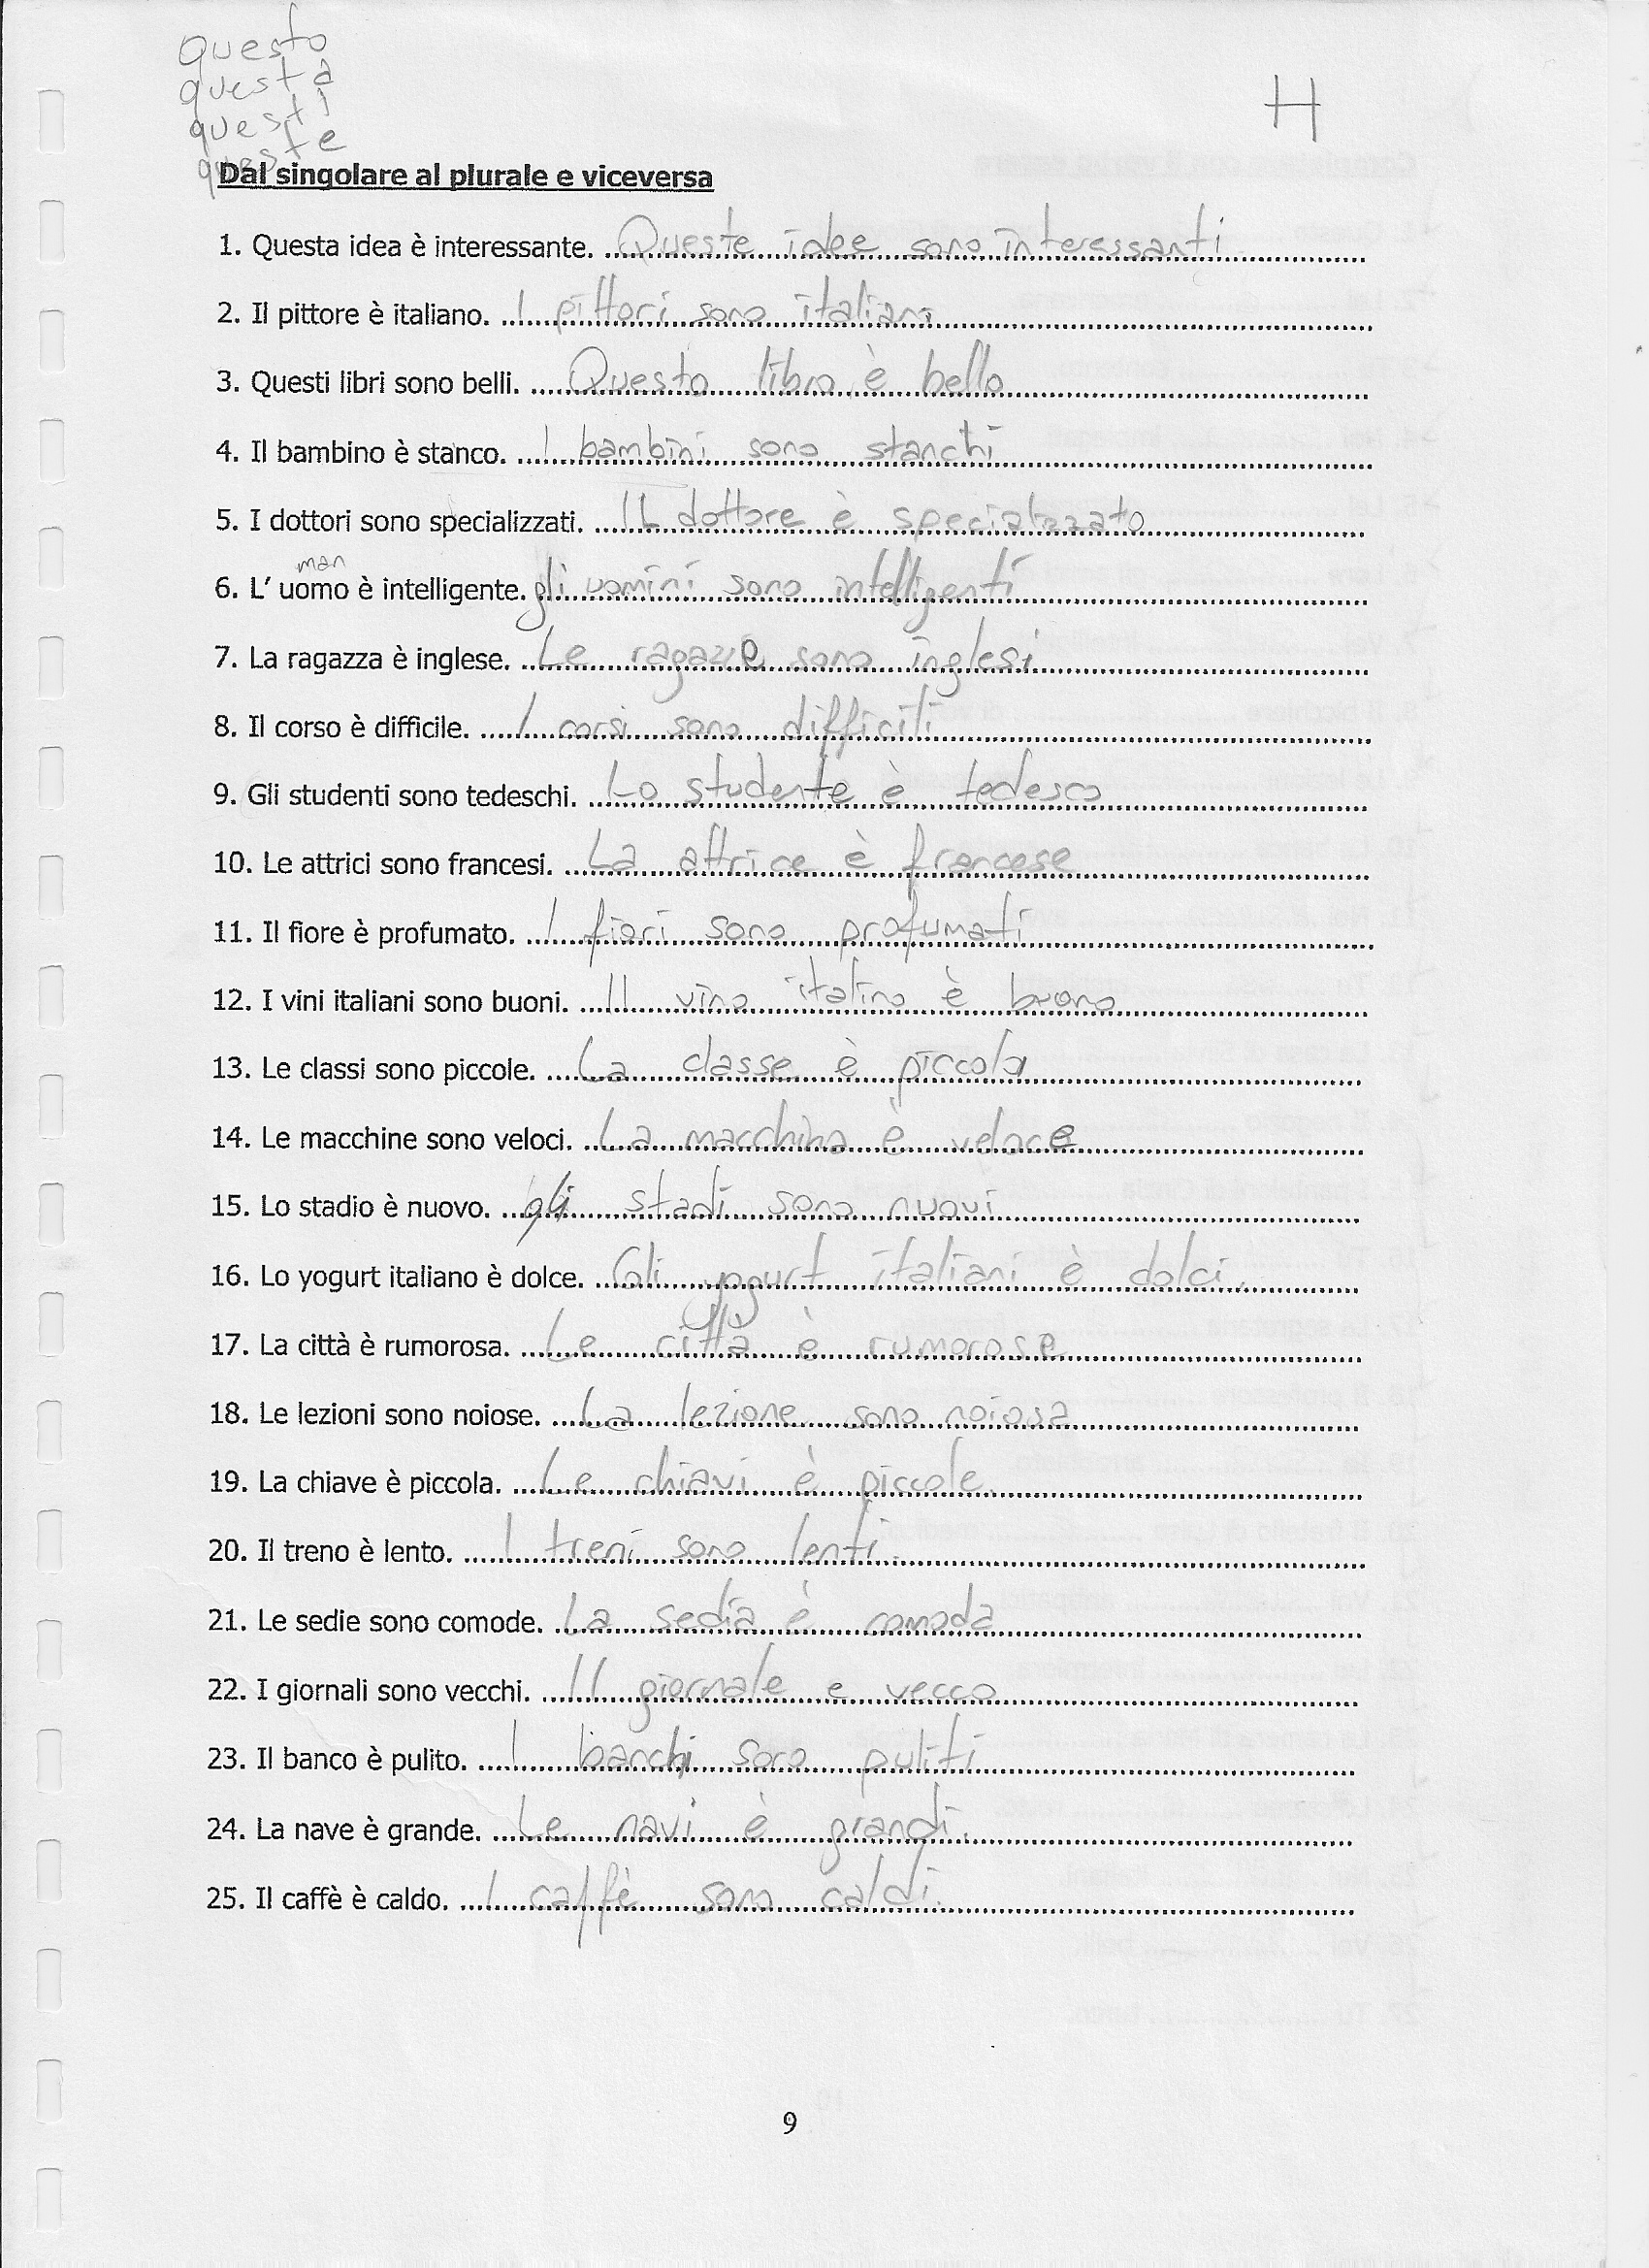 Questo
questa
questi
queste
H
Dal singolare al plurale e viceversa
1. Questa idea è interessante. Queste idee sono interessanti
2. Il pittore è italiano. I pittori sono italiani
3. Questi libri sono belli. Questo libro è bello
4. Il bambino è stanco. I bambini sono stanchi
5. I dottori sono specializzati. IL dottore è specializzato
man
6. L' uomo è intelligente. gli uomini sono intelligenti
7. La ragazza è inglese. Le ragazze sono inglesi
8. Il corso è difficile. I corsi sono difficili
9. Gli studenti sono tedeschi. Lo studente è tedesco
10. Le attrici sono francesi. La attrice è francese
11. Il fiore è profumato. I fiori sono profumati
12. I vini italiani sono buoni. Il vino italino è buono
13. Le classi sono piccole. La classe è piccola
14. Le macchine sono veloci. La macchina è veloce
15. Lo stadio è nuovo. gli stadi sono nuovi
16. Lo yogurt italiano è dolce. Gli yogurt italiani è dolci.
17. La città è rumorosa. Le città è rumorose
18. Le lezioni sono noiose. La lezione sono noiosa
19. La chiave è piccola. Le chiavi è piccole.
20. Il treno è lento. I treni sono lenti.
21. Le sedie sono comode. La sedia è comoda
22. I giornali sono vecchi. Il giornale e vecco
23. Il banco è pulito. I banchi sono puliti
24. La nave è grande. Le navi è grandi.
25. Il caffè è caldo. I caffè sono caldi.
9